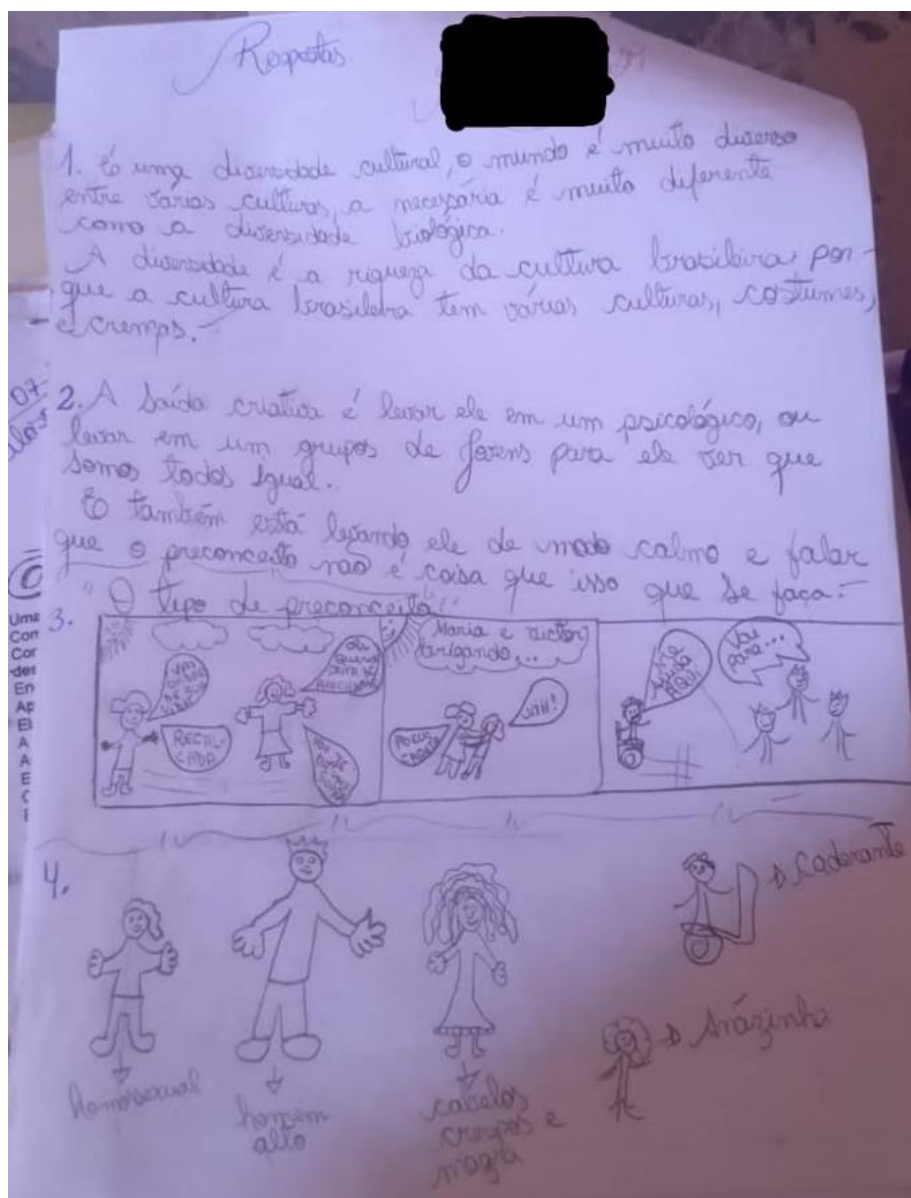 Respostas
1. É uma diversidade cultural, o mundo é muito diverso
entre várias culturas, a necessária é muito diferente
como a diversidade biológica.
A diversidade é a riqueza da cultura brasileira, por-
que a cultura brasileira tem várias culturas, costumes,
e crenças.
07
2. A Saída criativa é levar ele em um psicológico, ou
levar em um grupos de jovens para ele ver que
somos todos igual.
E também está levando ele de modo calmo e falar
que o preconceito não é coisa que isso que se faça.
3. "O tipo de preconceito"
RECAL-
CADA
Maria e victor
brigando...
Me
ajuda
AQUI
Vai
para...
Uma
Con
Cor
des
En
Ap
El
A
A
E
4.
homosexual
homem
alto
cabelos
crespos e
magra
Caderante
Anãzinha